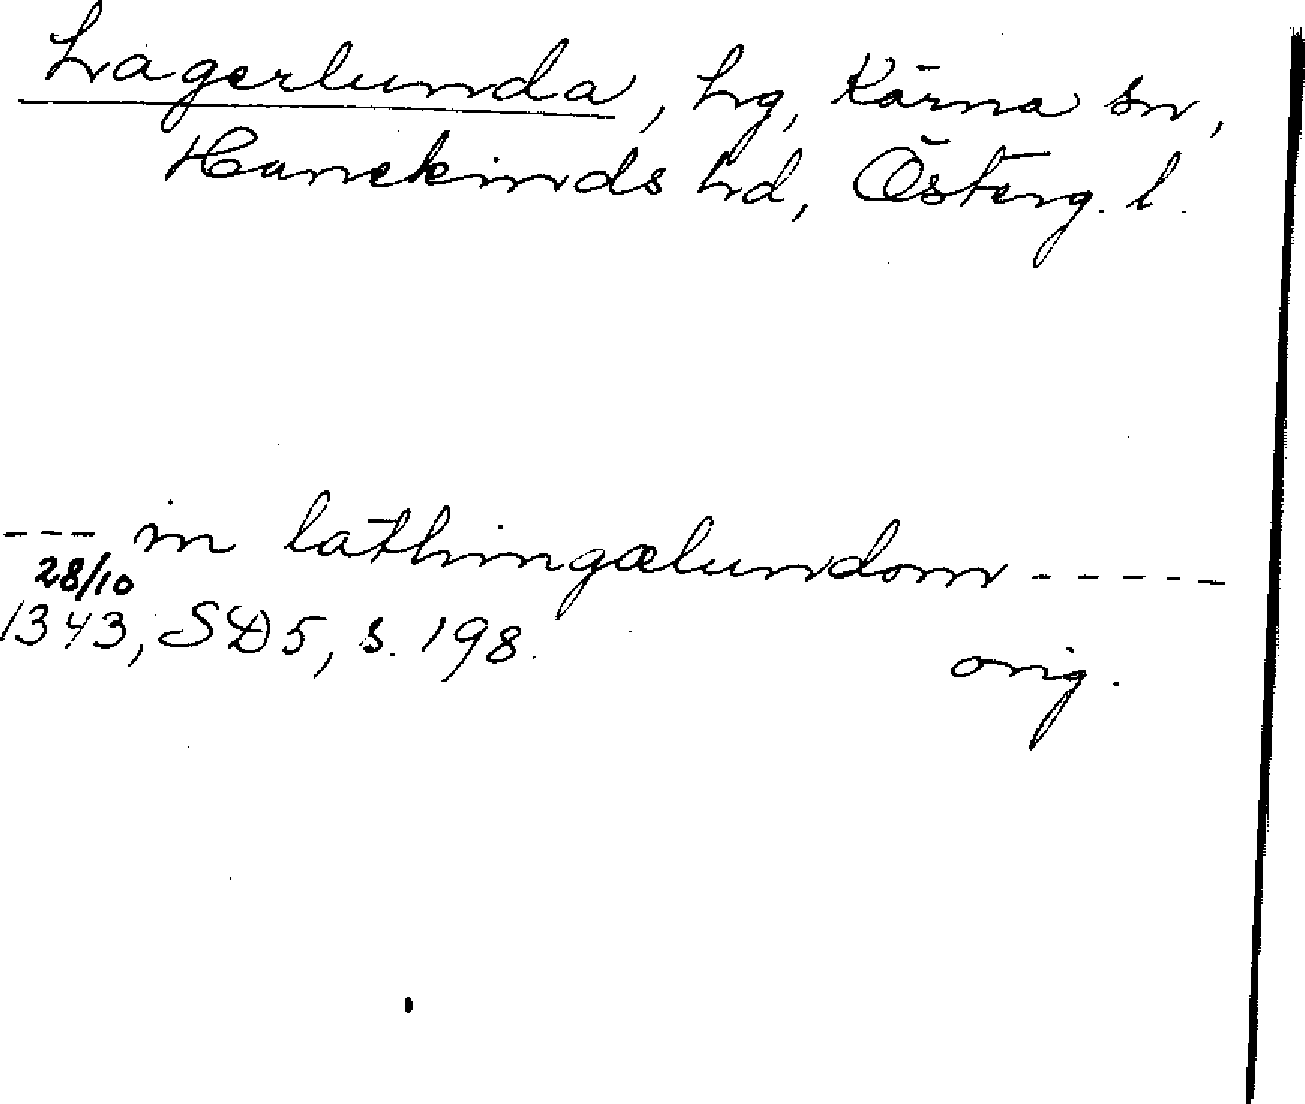 Lagerlunda, hg, Kärna sn,
Hanekinds hd, Österg. l.
--- in lathingælundom -----
28/10
1343, SD 5, s. 198.
orig.